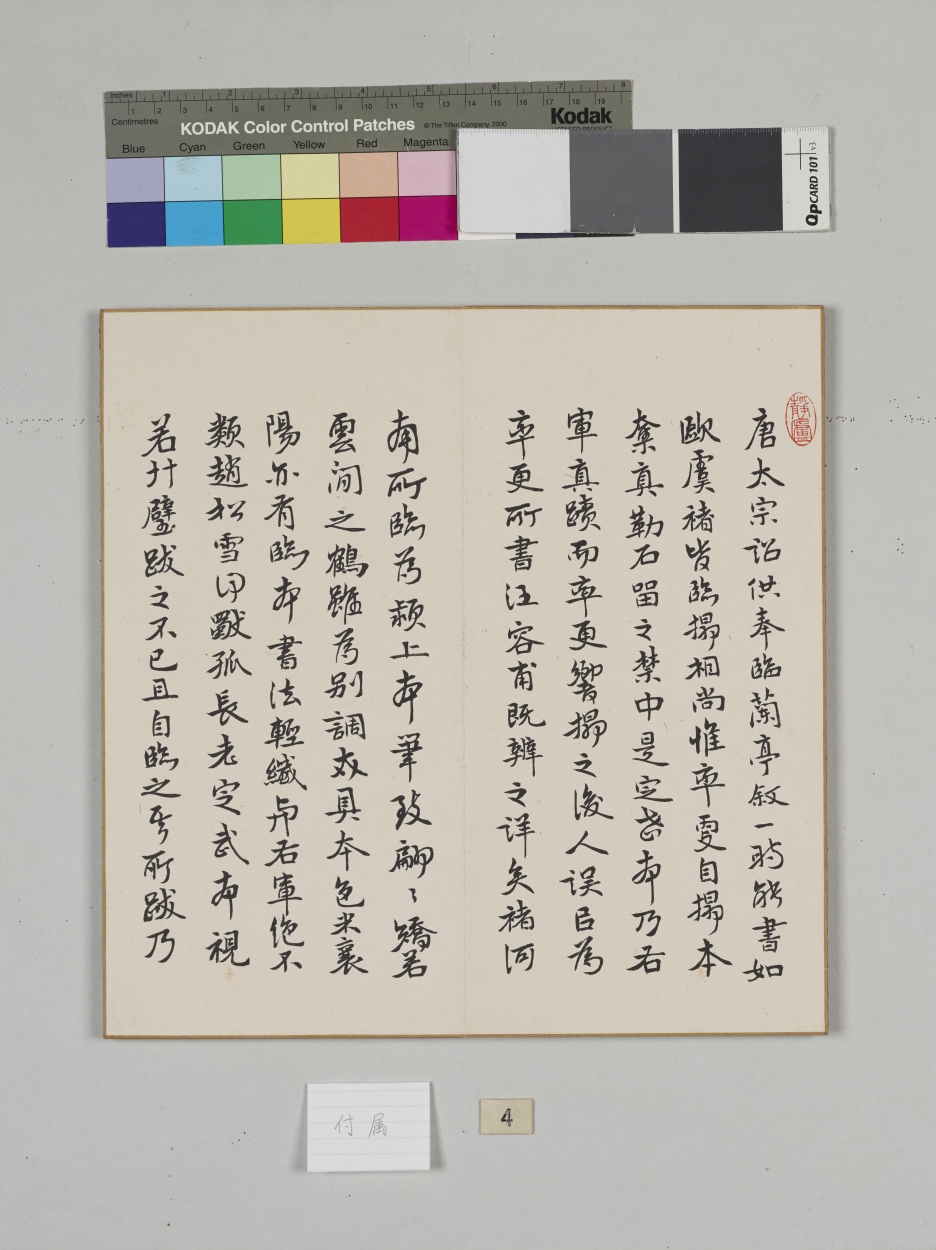 Inches 1 2 3 4 5 6 7 8
Centimetres 1 2 3 4 5 6 7 8 9 10 11 12 13 14 15 16 17 18 19
KODAK Color Control Patches © The Tiffen Company, 2000 Kodak
LICENSED PRODUCT
Blue Cyan Green Yellow Red Magenta
QPCARD 101 v3
靜廬
唐太宗詔供奉臨蘭亭敘一時能書如
歐虞褚皆臨搨相尚惟率更自搨本
奪真勒石留之禁中是定武本乃右
軍真蹟而率更響搨之後人誤以為
率更所書汪容甫既辨之詳矣褚河
南所臨為潁上本筆致翩〻矯若
雲間之鶴雖為别調亦具本色米襄
陽亦有臨本書法輕纖與右軍絶不
類趙松雪得獨孤長老定武本視
若廾璧跋之不已且自臨之其所跋乃
付属
4